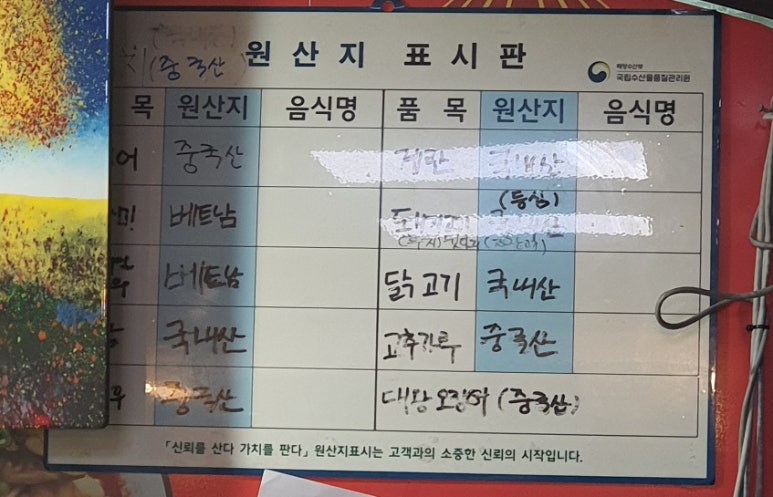 (중국산) 원산지 표시판
해양수산부
국립수산물품질관리원
목 원산지 음식명 품 목 원산지 음식명
어 중국산 계란 국내산
미 베트남 (등심)
베트남 닭고기 국내산
국내산 고추가루 중국산
중국산 대왕오징어 (중국산)
「신뢰를 산다 가치를 판다」 원산지표시는 고객과의 소중한 신뢰의 시작입니다.